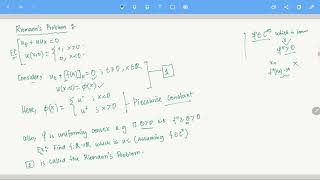 Riemann's Problem 1.
Ex: { u_t + u u_x = 0
u(x,0) = { 1, x>0
0, x<0.
Consider, u_t + [f(u)]_x = 0 ; t>0, x∈ℝ
u(x,0) = φ(x)
1
Here, φ(x) = { u^- ; x<0
u^+ ; x>0 → Piecewise constant
also, f is uniformly convex e.g ∃ θ>0 s.t f''≥θ>0
Ex: Find f:ℝ→ℝ, which is uc (Assuming f∈C²)
1 is called the Riemann's Problem.
which is